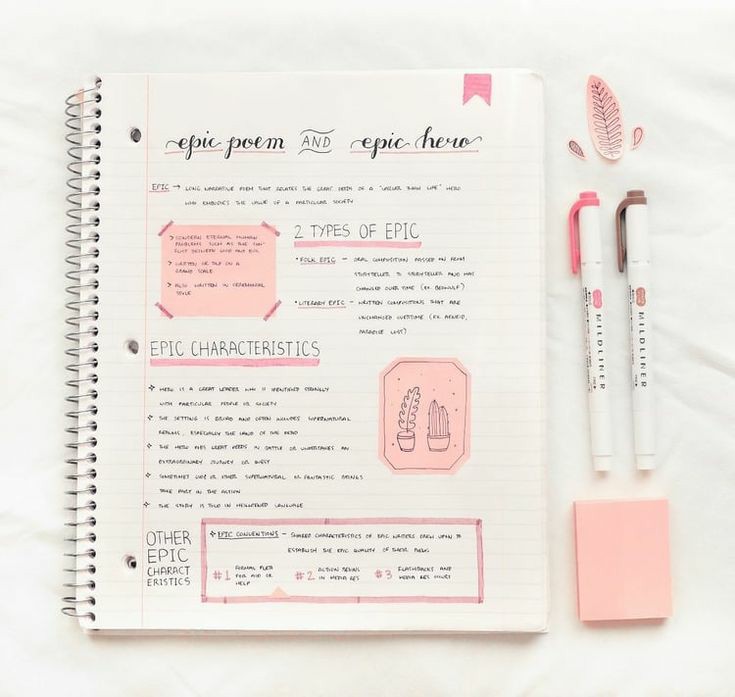 epic poem AND epic hero
EPIC → LONG NARRATIVE POEM THAT RELATES THE GREAT DEEDS OF A "LARGER THAN LIFE" HERO
WHO EMBODIES THE VALUE OF A PARTICULAR SOCIETY
> CONCERN ETERNAL HUMAN
PROBLEMS SUCH AS THE CON-
FLICT BETWEEN GOOD AND EVIL
> WRITTEN OR TOLD ON A
GRAND SCALE
> ALSO WRITTEN IN CEREMONIAL
STYLE
2 TYPES OF EPIC
• FOLK EPIC – ORAL COMPOSITION PASSED ON FROM
STORYTELLER TO STORYTELLER AND MAY
CHANGED OVER TIME (EX. BEOWULF)
• LITERARY EPIC – WRITTEN COMPOSITIONS THAT ARE
UNCHANGED OVERTIME (EX. AENEID,
PARADISE LOST)
EPIC CHARACTERISTICS
HERO IS A GREAT LEADER WHO IS IDENTIFIED STRONGLY
WITH PARTICULAR PEOPLE OR SOCIETY
THE SETTING IS BROAD AND OFTEN INCLUDES SUPERNATURAL
REALMS, ESPECIALLY THE LAND OF THE DEAD
THE HERO DOES GREAT DEEDS IN BATTLE OR UNDERTAKES AN
EXTRAORDINARY JOURNEY OR QUEST
SOMETIMES GODS OR OTHER SUPERNATURAL OR FANTASTIC BEINGS
TAKE PART IN THE ACTION
THE STORY IS TOLD IN HEIGHTENED LANGUAGE
OTHER
EPIC
CHARACT
ERISTICS
EPIC CONVENTIONS – SHARED CHARACTERISTICS OF EPIC WRITERS DREW UPON TO
ESTABLISH THE EPIC QUALITY OF THEIR
#1 FORMAL PLEA
FOR AID OR
HELP
#2 ACTION BEGINS
IN MEDIA RES
#3 FLASHBACKS AND
MEDIA RES
MILDLINER
MILDLINER